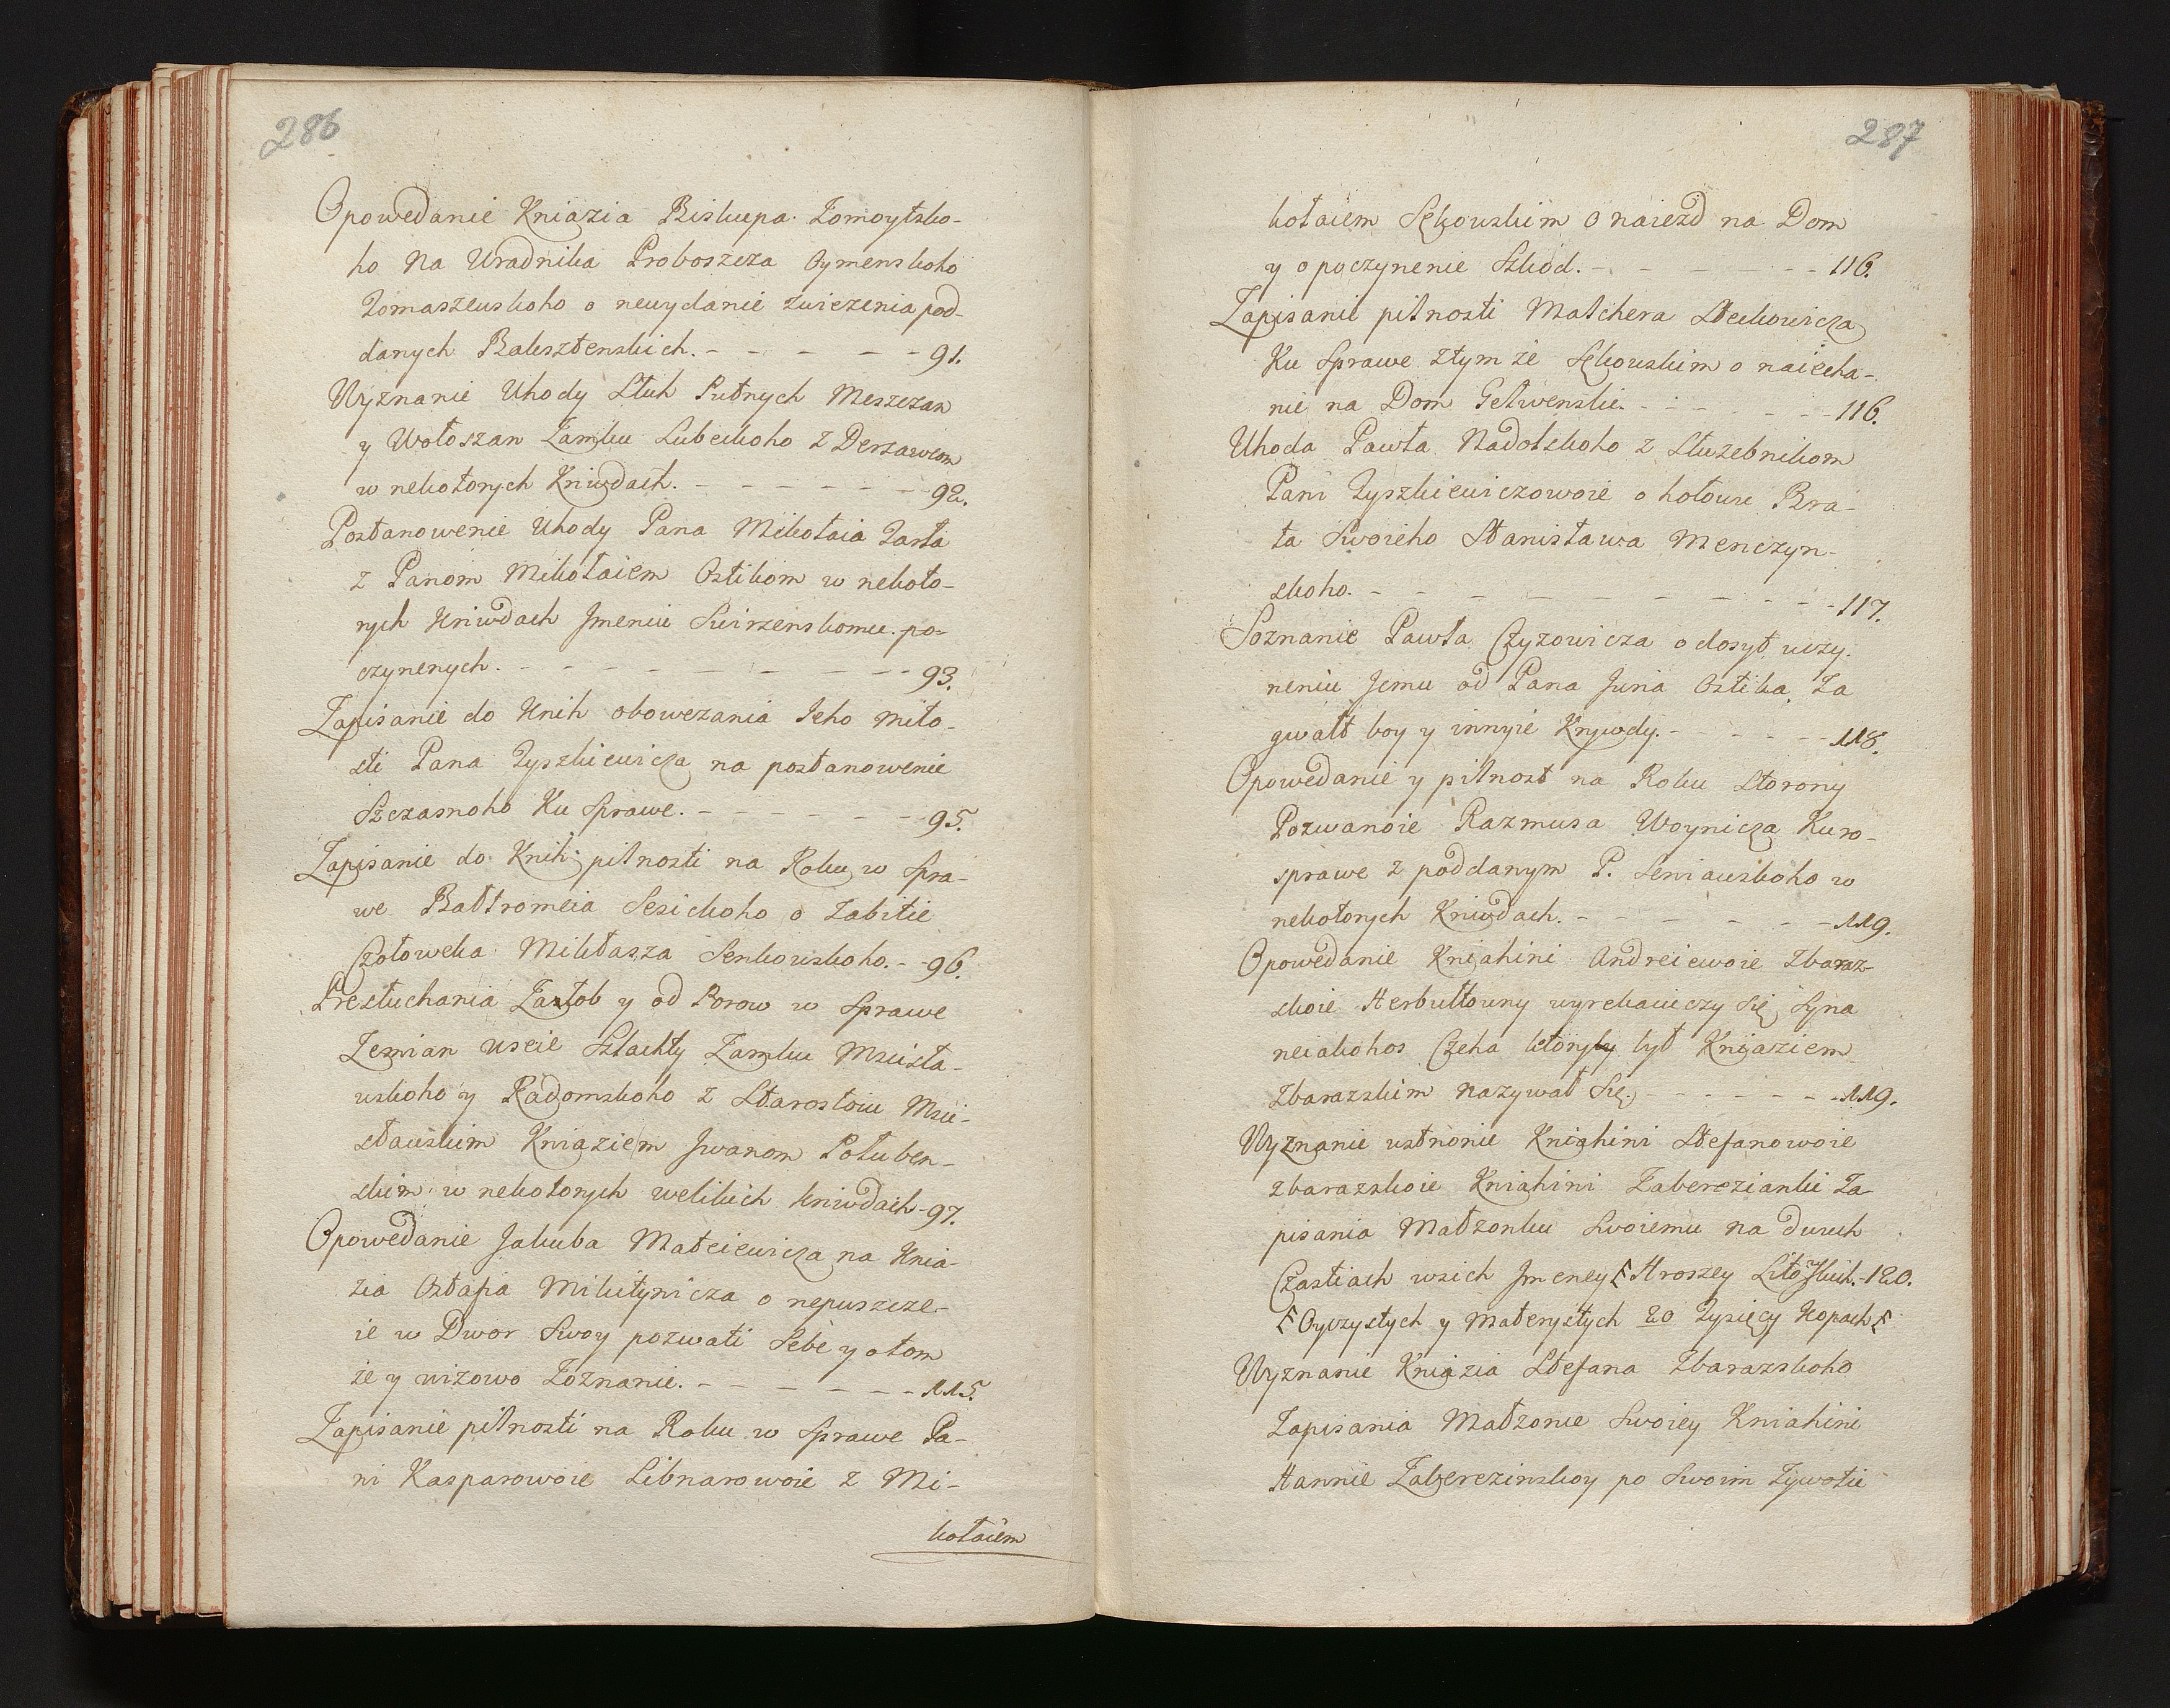 286
Opowedanie Kniazia Biskupa Żomoytsko-
ho na Uradnika Proboszcza Oymenskoho
Tomaszewskoho o newydanie zwiezenia pod-
danych Balesztenskich. - - - - - 91.
Wyznanie Uhody Słuh Putnych Meszczan
y Wołoszan Zamku Lubeckoho z Derzawcom
w nekotorych Kriwdach. - - - - - - 92.
Postanowenie Uhody Pana Mikołaia Jasta
z Panom Mikołaiem Ostikom w nekoto-
rych Kriwdach Jmeniu Swirzenskomu po-
czynenych. - - - - - - - - 93.
Zapisanie do Knih obowezania Jeho Miło-
sti Pana Tyszkiewicza na postanowenie
Szczasnoho Ku Sprawe. - - - - - - 95.
Zapisanie do Knih pilnosti na Roku w Spra-
we Bałtromeia Sesickoho o Zabitie
Czołoweka Mikłasza Senkowskoho. - - 96.
Presłuchania Żałob y od Porow w Sprawe
Zemian wseie Szlachty Zamku Mscisła-
wskoho y Radomskoho z Starostoiu Msci-
sławskim Kniaziem Jwanom Połuben-
skim w nekotorych welikich kriwdach - 97.
Opowedanie Jakuba Mateiewicza na Knia-
zia Ostafia Mikitynicza o nepuszcze-
ie w Dwor Swoy pozwati Sebe y otom
że y wizowo Zoznanie. - - - - - - 115.
Zapisanie pilnosti na Roku w Sprawe Pa-
ni Kasparowoie Libnarowoie z Mi-
kołaiem
287
kołaiem Sękowskim o naiezd na Dom
y o poczynenie Szkod. - - - - - - 116.
Zapisanie pilnosti Malchera Steckowicza
Ku Sprawe z tym że Sękowskim o naiecha-
nie na Dom Gelwenskie. - - - - - - 116.
Uhoda Pawła Nadolskoho z Służebnikom
Pani Tyszkiewiczowoie o hołowu Bra-
ta Swoieho Stanisława Menczyn-
skoho. - - - - - - - - - - 117.
Soznanie Pawła Czyzowicza o dosyt uczy-
neniu Jemu od Pana Juria Ostika za
gwałt boy y innyie Krywdy. - - - - - 118.
Opowedanie y pilnost na Roku Storony
Pozwanoie Razmusa Woynicza Kuro-
sprawe z poddanym P. Seniawskoho w
nekotorych Kriwdach. - - - - - - 119.
Opowedanie Kniahini Andreiewoie Zbaraz-
skoie Herbultowny wyrekaiuczy Się Syna
neiakohos Czeha ktoryby był Kniaziem
Zbarazskim nazywał Się. - - - - - - 119.
Wyznanie ustnonie Kniahini Stefanowoie
Zbarazskoie Kniahini Zaberezianki Za-
pisania Małzonku Swoiemu na dwuch
Czastiach wsich Jmeney Hroszey Lito - 120.
Oyczystych y Materystych 20 Tysięcy Kopach
Wyznanie Kniazia Stefana Zbarazskoho
Zapisania Małzonce Swoiey Kniahini
Hannie Zaberezinskoy po Swoim Zywotie